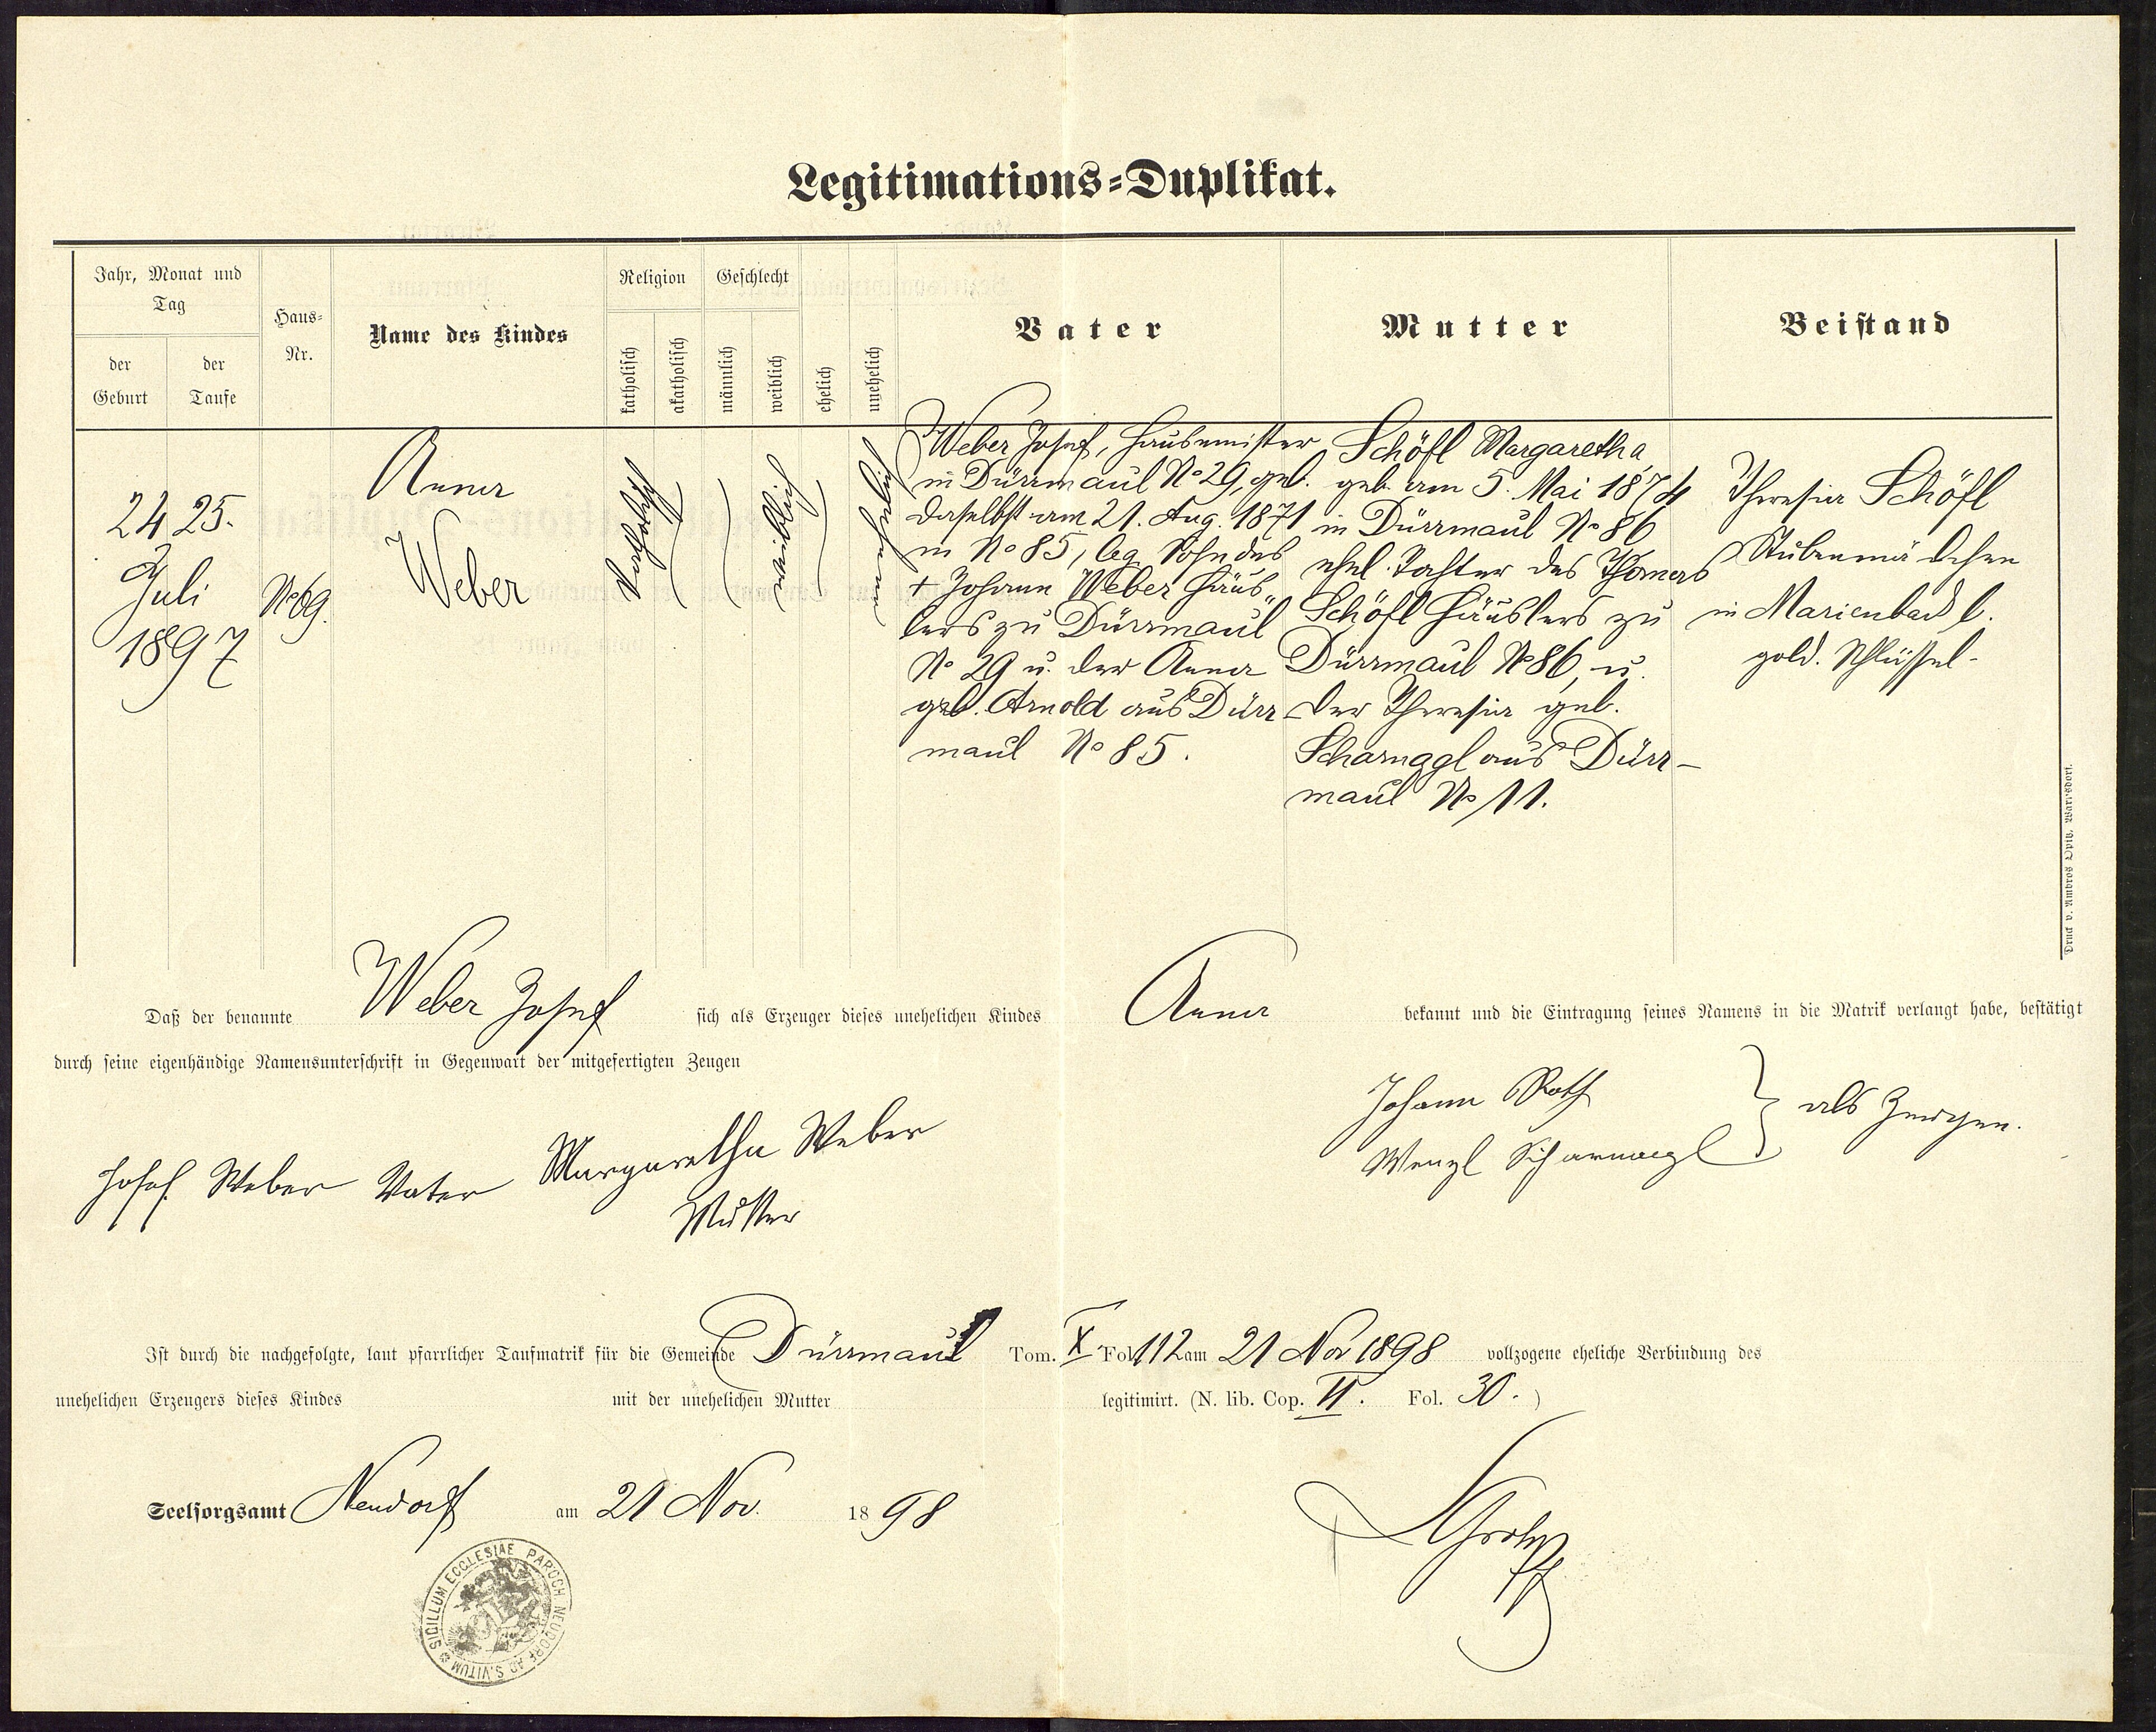 Legitimations-Duplikat.
Jahr, Monat und
Tag
der
Geburt
der
Taufe
Haus-
Nr.
Name des Kindes
Religion
katholisch
akatholisch
Geschlecht
männlich
weiblich
ehelich
unehelich
Vater
Mutter
Beistand
24 25.
Juli
1897
No 69.
Anna
Weber
katholisch
weiblich
unehelich
Weber Josef, Hausmeister
in Dürrmaul No 29, geb.
daselbst am 21. Aug. 1871
in No 85, leg. Sohn des
+ Johann Weber Häus„
lers zu Dürrmaul
No 29 u. der Anna
geb. Arnold aus Dürr
maul No 85.
Schöfl Margaretha
geb. am 5. Mai 1874
in Dürrmaul No 86
ehel. Tochter des Thomas
Schöfl Häuslers zu
Dürrmaul No 86, u.
der Theresia geb.
Scharnagl aus Dürr-
maul No 11.
Theresia Schöfl
Stubenmädchen
in Marienbad l.
gold. Schlüssel-
Daß der benannte Weber Josef sich als Erzeuger dieses unehelichen Kindes Anna bekannt und die Eintragung seines Namens in die Matrik verlangt habe, bestätigt
durch seine eigenhändige Namensunterschrift in Gegenwart der mitgefertigten Zeugen
Johann Roth
Wenzl Scharnagl } als Zeugen.
Josef Weber Vater Margaretha Weber
Mutter
Ist durch die nachgefolgte, laut pfarrlicher Taufmatrik für die Gemeinde Dürrmaul Tom. X Fol 112 am 21 Nov 1898 vollzogene eheliche Verbindung des
unehelichen Erzeugers dieses Kindes mit der unehelichen Mutter legitimirt. (N. lib. Cop. II. Fol. 30. )
Seelsorgsamt Neudorf am 21 Nov. 1898
SIGILLUM ECCLESIAE PAROCH NEUDORF AD S. VITUM
Druck v. Ambros Opitz, Warnsdorf.